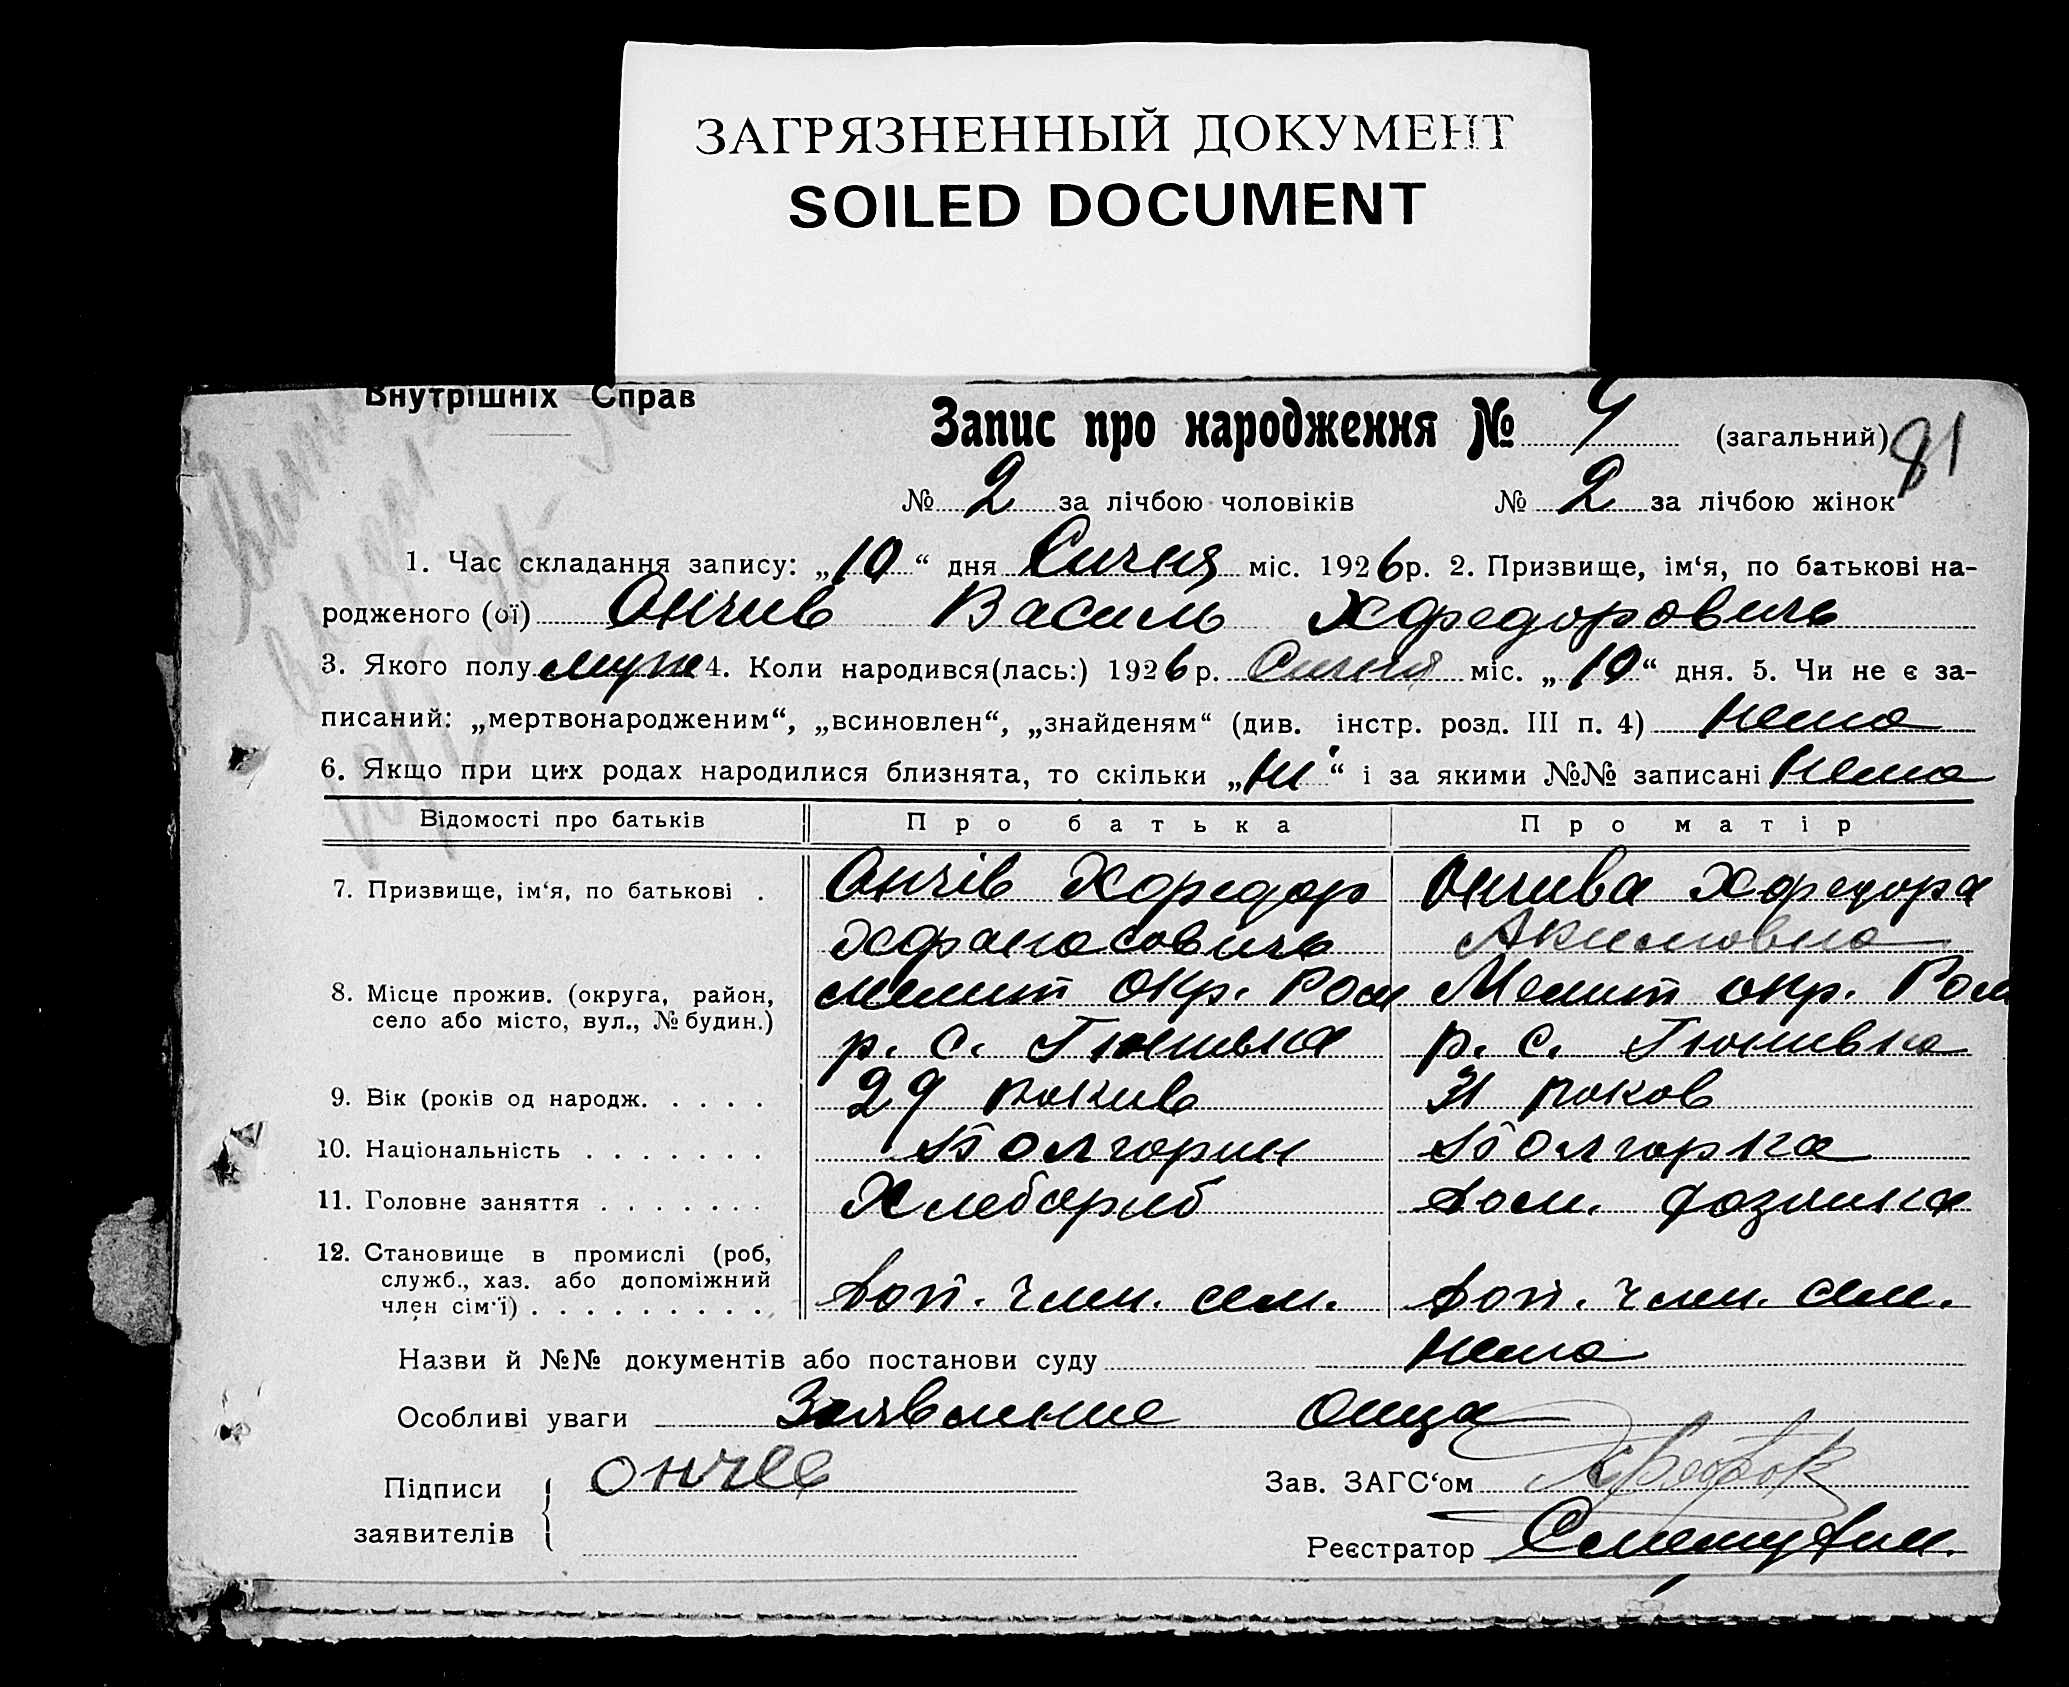 ЗАГРЯЗНЕННЫЙ ДОКУМЕНТ
SOILED DOCUMENT
Внутрішніх Справ
Запис про народження № 4 (загальний) 81
№ 2 за лічбою чоловіків № 2 за лічбою жінок
1. Час складання запису: „10“ дня Сичня міс. 1926 р. 2. Призвище, ім‘я, по батькові на-
родженого (ої) Ончив Василь Хфедорович
3. Якого полу муж 4. Коли народився(лась:) 1926 р. Сичня міс. „10“ дня. 5. Чи не є за-
писаний: „мертвонародженим“, „всиновлен“, „знайденям“ (див. інстр. розд. III п. 4) нема
6. Якщо при цих родах народилися близнята, то скільки „ни“ і за якими №№ записані нема
Відомості про батьків Про батька Про матір
7. Призвище, ім‘я, по батькові . Ончів Хфедор Ончива Хфедора
Хфанасович Акимовна
8. Місце прожив. (округа, район, Мелит окр. Ром Мелит окр. Ром
село або місто, вул., № будин.) р. с. Гюнивка р. с. Гюнивка
9. Вік (років од народж. . . . . 29 рокив 31 роков
10. Національність . . . . . . . Болгорин Болгорка
11. Головне заняття . . . . . . . Хлебориб Дом. хозяика
12. Становище в промислі (роб,
служб., хаз. або допоміжний
член сім‘ї) . . . . . . . . . . Доп. член. сем. Доп. член. сем.
Назви й №№ документів або постанови суду нема
Особливі уваги Заявление Отца
Підписи Ончев Зав. ЗАГС‘ом
заявителів Реєстратор